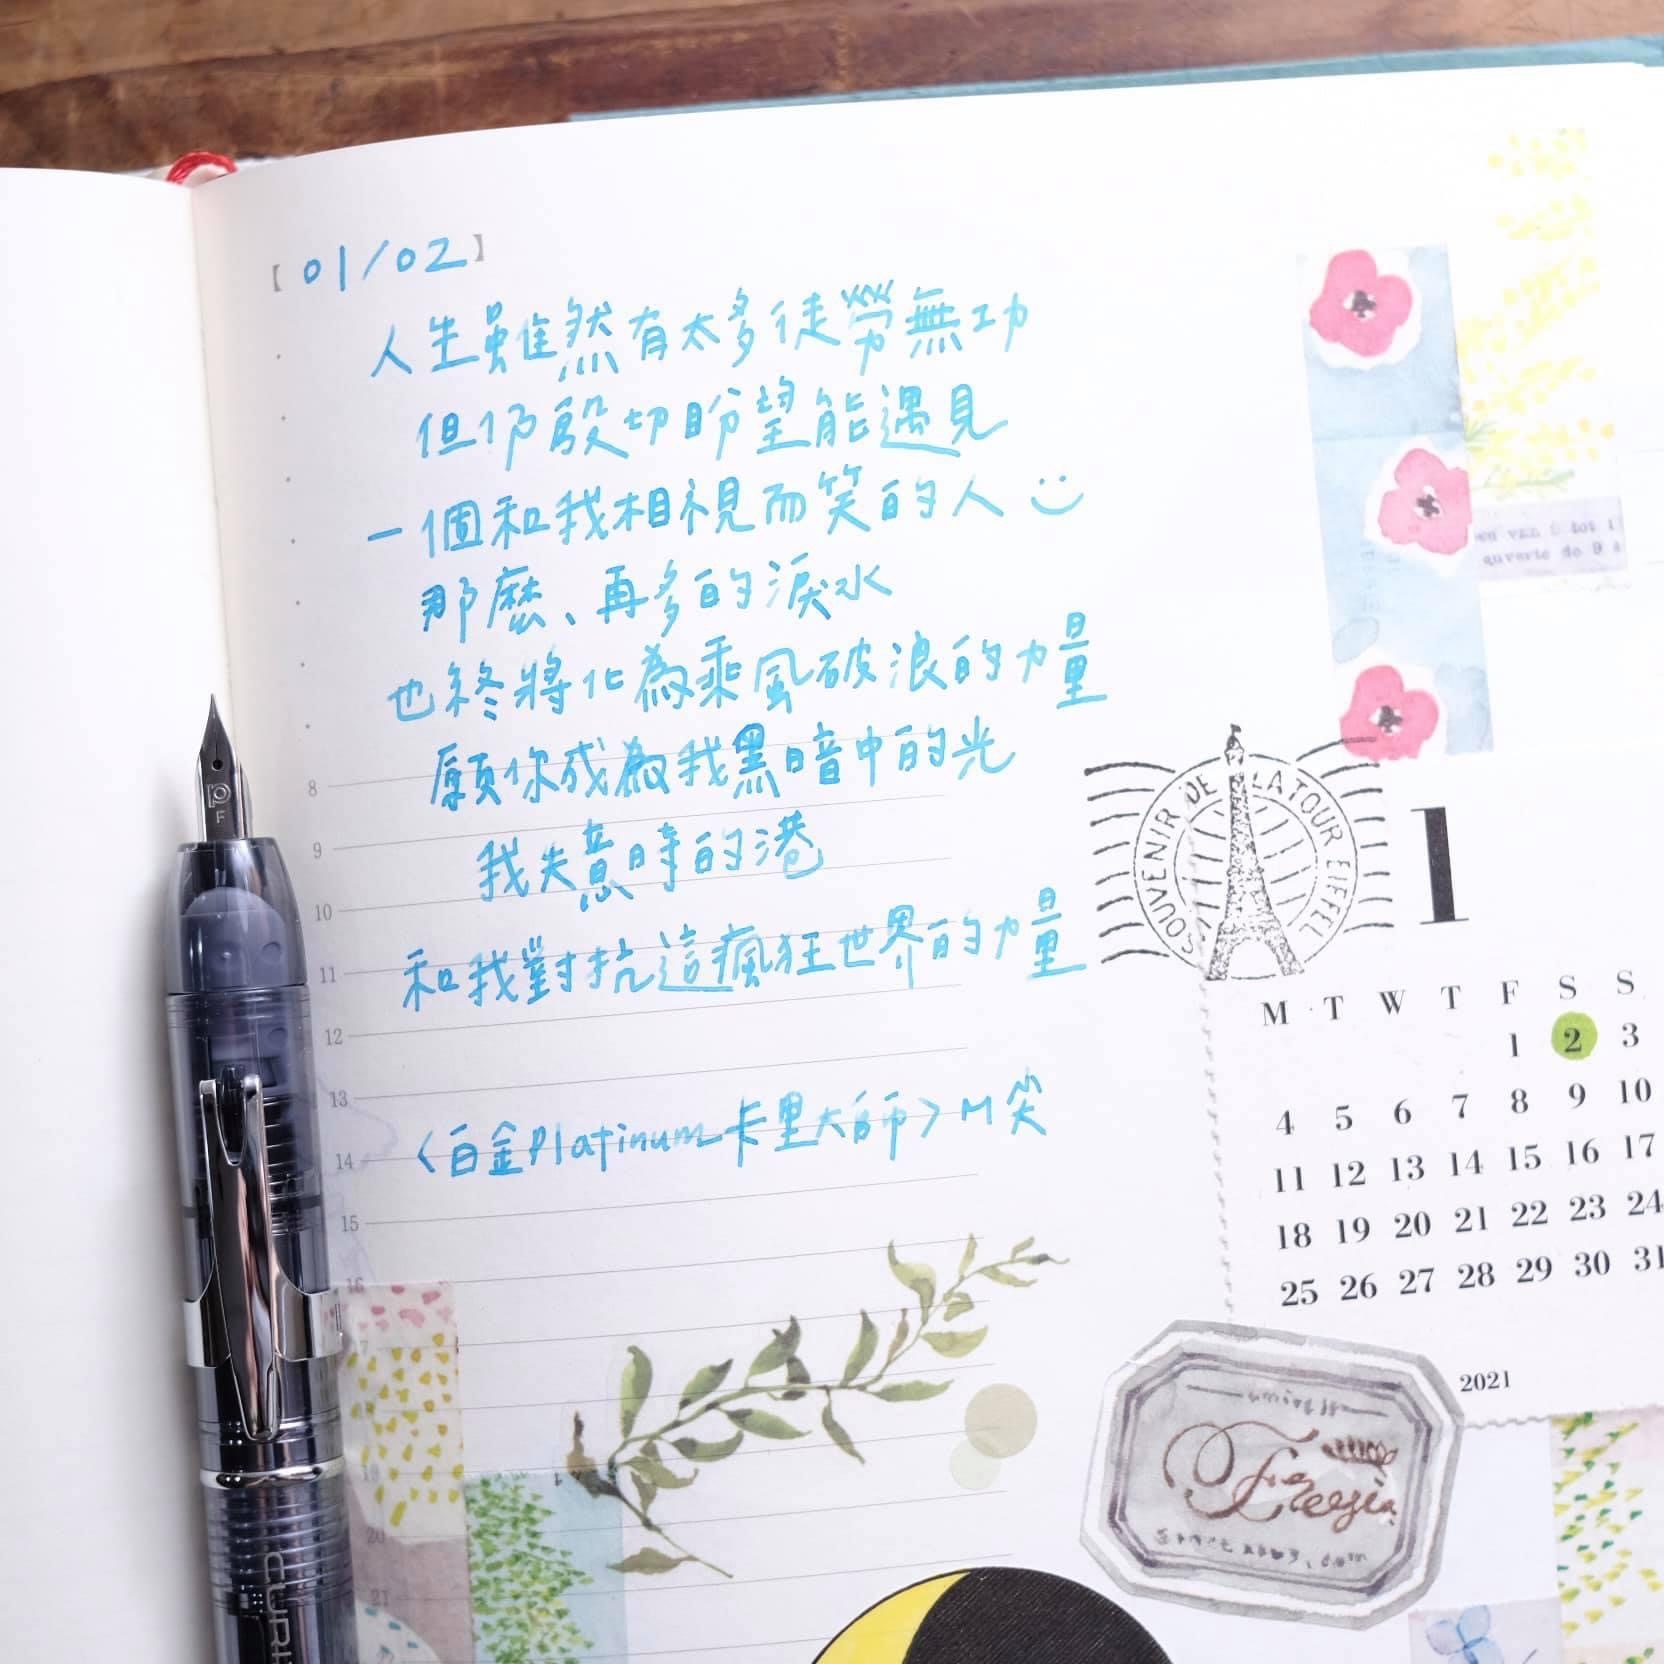 【01/02】
人生雖然有太多徒勞無功
但仍殷切盼望能遇見
一個和我相視而笑的人
那麼、再多的淚水
也終將化為乘風破浪的力量
願你成為我黑暗中的光
我失意時的港
和我對抗這瘋狂世界的力量
<白金Platinum卡里大師>M尖
8
9
10
11
12
13
14
15
16
17
18
19
20
21
P
F
CURI
van 8 tot 1
ouverte de 9 à
SOUVENIR DE LA TOUR EIFFEL
1
M T W T F S S
1 2 3
4 5 6 7 8 9 10
11 12 13 14 15 16 17
18 19 20 21 22 23 24
25 26 27 28 29 30 31
2021
Freesia